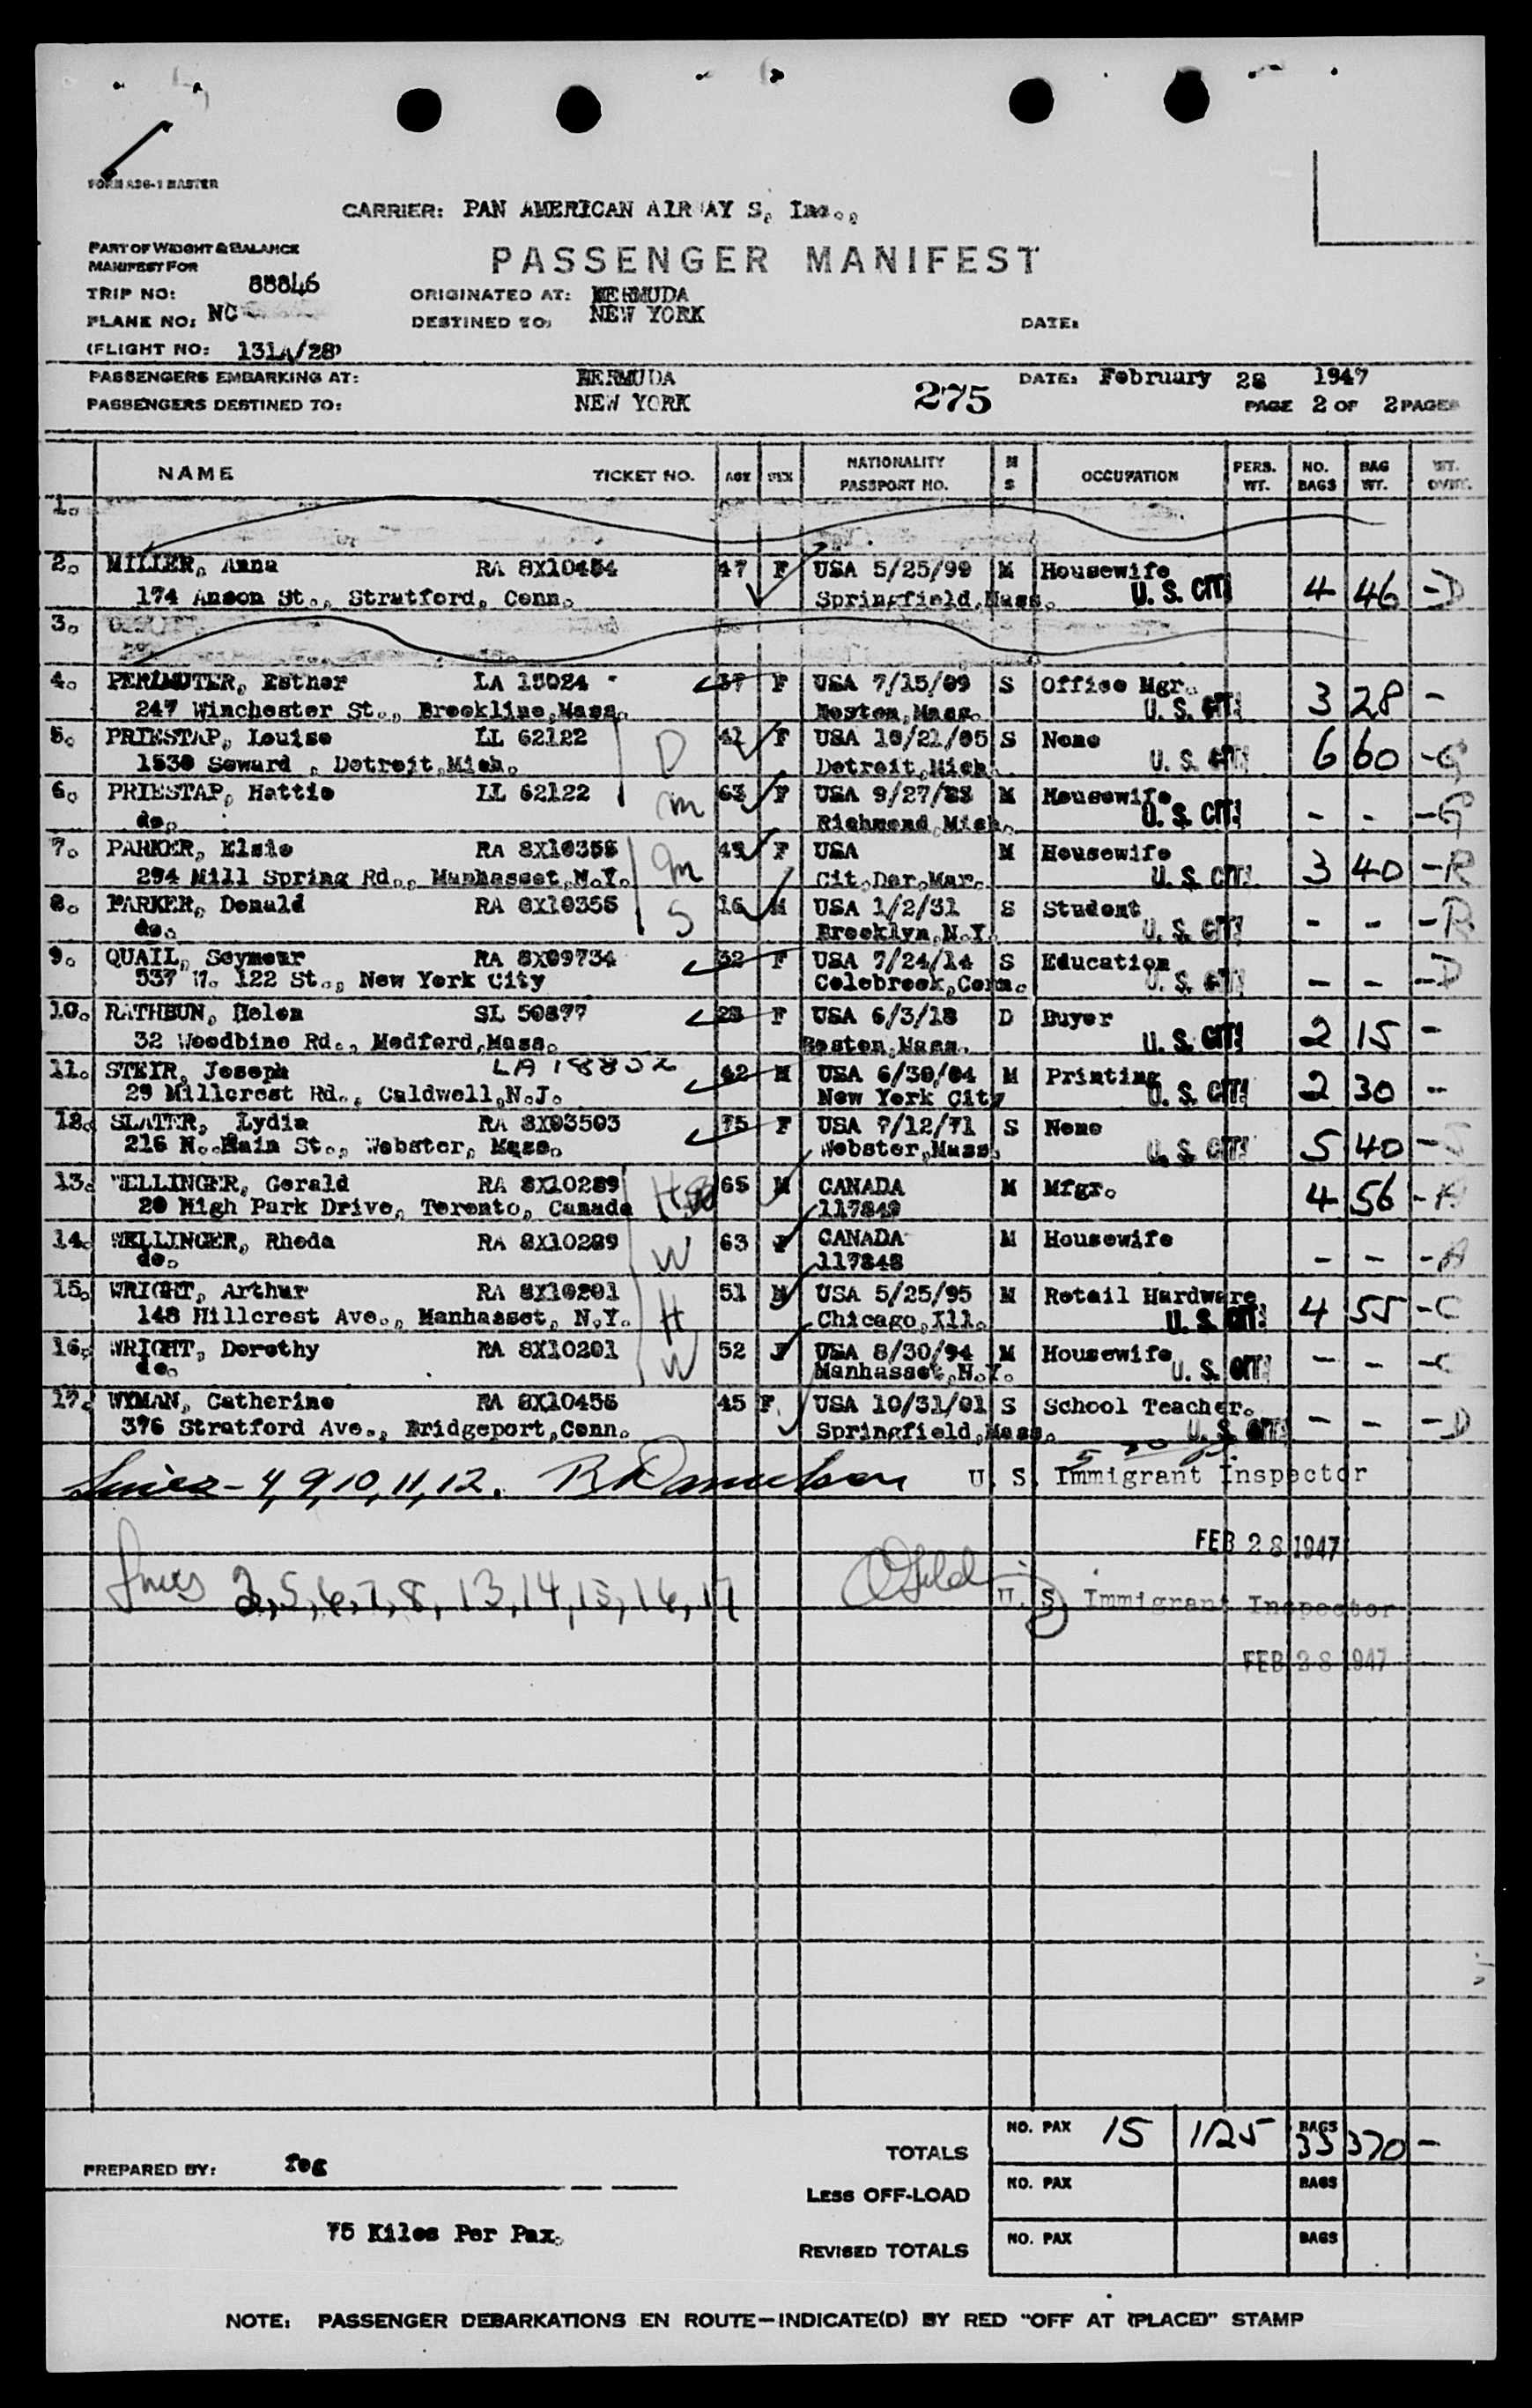 FORM ASG-1 MASTER
CARRIER: PAN AMERICAN AIR AY S, Inc.,
PART OF WEIGHT & BALANCE
MANIFEST FOR
PASSENGER MANIFEST
TRIP NO: 88846
ORIGINATED AT: BERMUDA
PLANE NO: NC
DESTINED TO: NEW YORK
DATE:
(FLIGHT NO: 131A/28)
PASSENGERS EMBARKING AT: BERMUDA
275
DATE: February 28 1947
PASSENGERS DESTINED TO: NEW YORK
PAGE 2 OF 2 PAGES
NAME TICKET NO. AGE SEX NATIONALITY PASSPORT NO. M S OCCUPATION PERS. WT. NO. BAGS BAG WT. WT. OVER.
1.
2. MILLER, Anna RA 8X10454 47 F USA 5/25/99 M Housewife
174 Anson St., Stratford, Conn. Springfield, Mass. U. S. CIT! 4 46 - D
3.
4. PERLMUTER, Esther LA 15024 37 F USA 7/15/09 S Office Mgr.
247 Winchester St., Brookline, Mass. Boston, Mass. U. S. CIT! 3 28 -
5. PRIESTAP, Louise LL 62122 D 41 F USA 10/21/05 S None
1530 Seward , Detroit, Mich. Detroit, Mich. U. S. CIT! 6 60 - G
6. PRIESTAP, Hattie LL 62122 m 63 F USA 9/27/83 M Housewife
do. Richmond, Mich. U. S. CIT! - - - G
7. PARKER, Elsie RA 8X10355 m 49 F USA M Housewife
294 Mill Spring Rd., Manhasset, N.Y. Cit. Der. Mar. U. S. CIT! 3 40 - R
8. PARKER, Donald RA 8X10355 S 16 M USA 1/2/31 S Student
do. Brooklyn, N.Y. U. S. CIT! - - - R
9. QUAIL, Seymour RA 8X09734 32 F USA 7/24/14 S Education
537 W. 122 St., New York City Colebrook, Conn. U. S. CIT! - - - D
10. RATHBUN, Helen SL 50877 28 F USA 6/3/18 D Buyer
32 Woodbine Rd., Medford, Mass. Boston, Mass. U. S. CIT! 2 15 -
11. STEIR, Joseph LA 18832 42 M USA 6/30/04 M Printing
29 Millcrest Rd., Caldwell, N.J. New York City U. S. CIT! 2 30 -
12. SLATER, Lydia RA 8X03503 75 F USA 7/12/71 S None
216 N. Main St., Webster, Mass. Webster, Mass. U. S. CIT! 5 40 - S
13. WELLINGER, Gerald RA 8X10289 65 M CANADA M Mfgr.
20 High Park Drive, Toronto, Canada 117849 4 56 - A
14. WELLINGER, Rhoda RA 8X10289 W 63 F CANADA M Housewife
do. 117848 - - - A
15. WRIGHT, Arthur RA 8X10201 H 51 M USA 5/25/95 M Retail Hardware
148 Hillcrest Ave., Manhasset, N.Y. Chicago, Ill. U. S. CIT! 4 55 - C
16. WRIGHT, Dorothy RA 8X10201 W 52 F USA 8/30/94 M Housewife
do. Manhasset, N.Y. U. S. CIT! - - - C
17. WYMAN, Catherine RA 8X10455 45 F USA 10/31/01 S School Teacher.
376 Stratford Ave., Bridgeport, Conn. Springfield, Mass. U. S. CIT! - - - D
Lines - 4, 9, 10, 11, 12. R Danielson U. S. Immigrant Inspector
FEB 28 1947
Lines 2, 5, 6, 7, 8, 13, 14, 15, 16, 17 U. S. Immigrant Inspector
FEB 28 1947
TOTALS NO. PAX 15 1125 BAGS 33 370 -
PREPARED BY: feg
LESS OFF-LOAD NO. PAX BAGS
75 Kilos Per Pax.
REVISED TOTALS NO. PAX BAGS
NOTE: PASSENGER DEBARKATIONS EN ROUTE—INDICATE(D) BY RED "OFF AT (PLACE)" STAMP